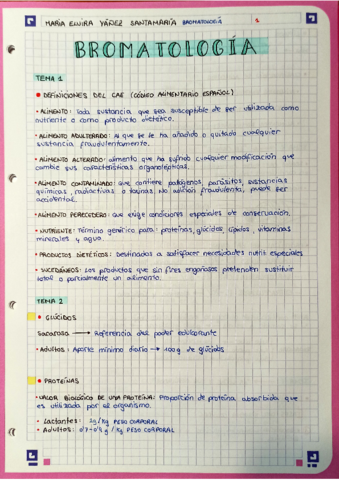 MARÍA ELVIRA YÁÑEZ SANTAMARÍA BROMATOLOGÍA 1
BROMATOLOGÍA
TEMA 1
• DEFINICIONES DEL CAE (CÓDIGO ALIMENTARIO ESPAÑOL)
• ALIMENTO: toda sustancia que sea susceptible de ser utilizada como
nutriente o como producto dietético.
• ALIMENTO ADULTERADO: Al que se le ha añadido o quitado cualquier
sustancia fraudulentamente.
• ALIMENTO ALTERADO: alimento que ha sufrido cualquier modificación que
cambie sus características organolépticas.
• ALIMENTO CONTAMINADO: que contiene patógenos, parásitos, sustancias
químicas, radiactivas o toxinas. No adición fraudulenta, puede ser
accidental.
• ALIMENTO PERECEDERO: que exige condiciones especiales de conservación.
• NUTRIENTE: Término genérico para: proteínas, glúcidos, lípidos, vitaminas
minerales y agua.
• PRODUCTOS DIETÉTICOS: Destinados a satisfacer necesidades nutris especiales
• SUCEDÁNEOS: Los productos que sin fines engañosos pretenden sustituir
total o parcialmente un alimento.
TEMA 2
• GLÚCIDOS
Sacarosa → Referencia del poder edulcorante
• Adultos: Aporte mínimo diario → 100g de glúcidos
• PROTEÍNAS
• VALOR BIOLÓGICO DE UNA PROTEÍNA: Proporción de proteína absorbida que
es utilizada por el organismo.
• Lactantes: 2g/Kg PESO CORPORAL
• Adultos: g/Kg PESO CORPORAL